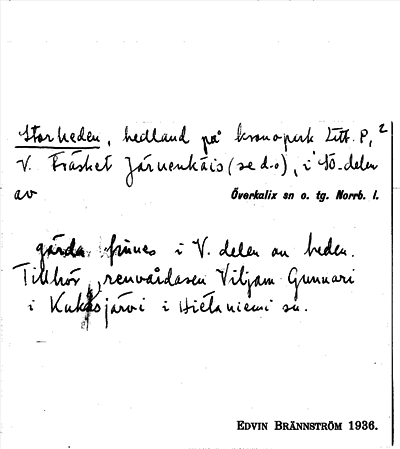 Storheden, hedland på kronopark Litt. P, 2
V. Fräsket Järvenkäis (se d.o), i SÖ-delen
av Överkalix sn o. tg. Norrb. l.
gärda finnes i V. delen av heden.
Tillhör renvårdaren Viljam Gunnari
i Kukasjärvi i Hietaniemi sn.
EDVIN BRÄNNSTRÖM 1936.